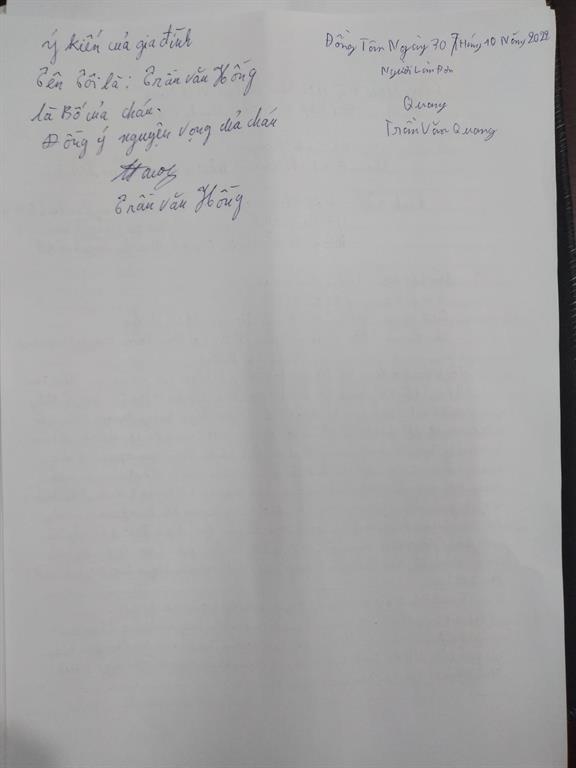 ý kiến của gia đình
Tên Tôi là: Trần văn Hồng
là Bố của cháu.
Đồng ý nguyện vọng của cháu
Trần văn Hồng
Đồng Tâm Ngày 30 Tháng 10 Năm 2022
Người Làm Đơn
Quang
Trần Văn Quang